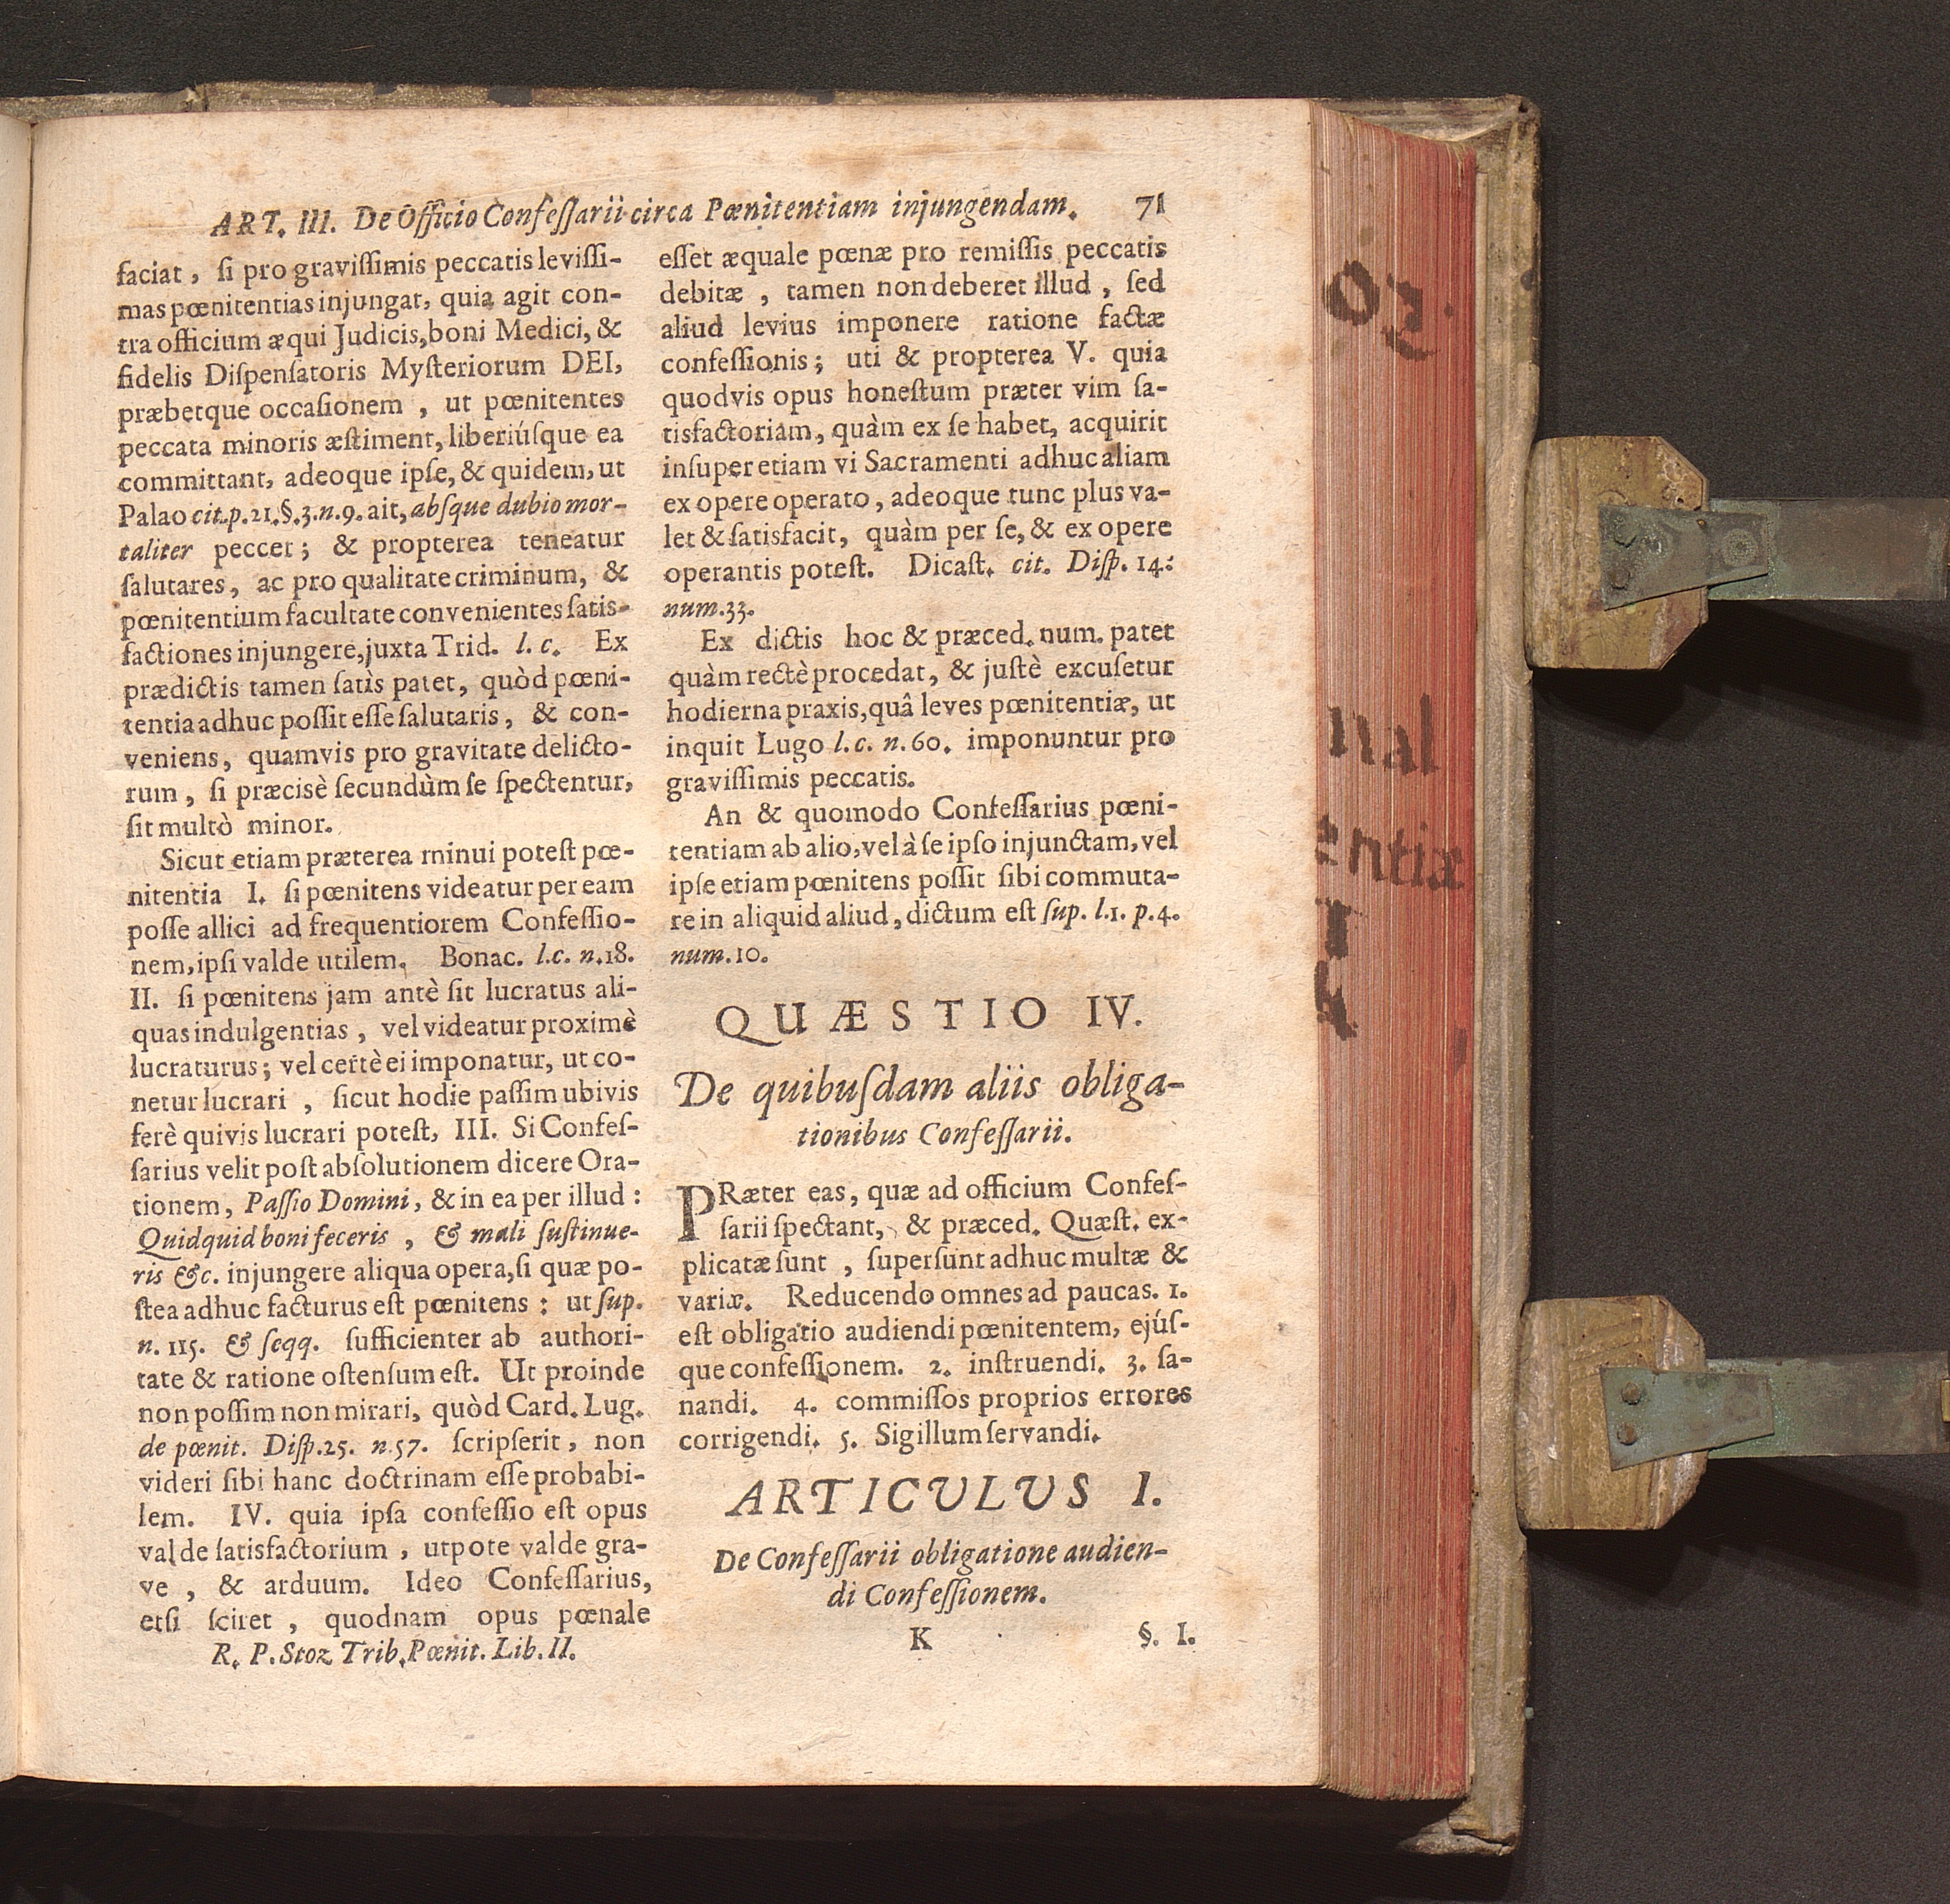 ART. III. De Officio Confeſſarii circa Pœnitentiam injungendam. 71
faciat, ſi pro graviſſimis peccatis leviſſi-
mas pœnitentias injungat, quia agit con-
tra officium æqui Judicis, boni Medici, &
fidelis Diſpenſatoris Myſteriorum DEI,
præbetque occaſionem, ut pœnitentes
peccata minoris æſtiment, liberiúſque ea
committant, adeoque ipſe, & quidem, ut
Palao cit. p. 21. §. 3. n. 9. ait, abſque dubio mor-
taliter peccet; & propterea teneatur
ſalutares, ac pro qualitate criminum, &
pœnitentium facultate convenientes ſatis-
factiones injungere, juxta Trid. l. c. Ex
prædictis tamen ſatìs patet, quòd pœni-
tentia adhuc poſſit eſſe ſalutaris, & con-
veniens, quamvis pro gravitate delicto-
rum, ſi præcisè ſecundùm ſe ſpectentur,
ſit multò minor.
Sicut etiam præterea minui poteſt pœ-
nitentia I. ſi pœnitens videatur per eam
poſſe allici ad frequentiorem Confeſſio-
nem, ipſi valde utilem. Bonac. l. c. n. 18.
II. ſi pœnitens jam antè ſit lucratus ali-
quas indulgentias, vel videatur proximè
lucraturus; vel certè ei imponatur, ut co-
netur lucrari, ſicut hodie paſſim ubivis
ferè quivis lucrari poteſt, III. Si Confeſ-
ſarius velit poſt abſolutionem dicere Ora-
tionem, Paſſio Domini, & in ea per illud:
Quidquid boni feceris, & mali ſuſtinue-
ris &c. injungere aliqua opera, ſi quæ po-
ſtea adhuc facturus eſt pœnitens: ut ſup.
n. 115. & ſeqq. ſufficienter ab authori-
tate & ratione oſtenſum eſt. Ut proinde
non poſſim non mirari, quòd Card. Lug.
de pœnit. Diſp. 25. n. 57. ſcripſerit, non
videri ſibi hanc doctrinam eſſe probabi-
lem. IV. quia ipſa confeſſio eſt opus
valde ſatisfactorium, utpote valde gra-
ve, & arduum. Ideo Confeſſarius,
etſi ſciret, quodnam opus pœnale
R. P. Stoz Trib. Pœnit. Lib. II.
eſſet æquale pœnæ pro remiſſis peccatis
debitæ, tamen non deberet illud, ſed
aliud levius imponere ratione factæ
confeſſionis; uti & propterea V. quia
quodvis opus honeſtum præter vim ſa-
tisfactoriam, quàm ex ſe habet, acquirit
inſuper etiam vi Sacramenti adhuc aliam
ex opere operato, adeoque tunc plus va-
let & ſatisfacit, quàm per ſe, & ex opere
operantis poteſt. Dicaſt. cit. Diſp. 14.
num. 33.
Ex dictis hoc & præced. num. patet
quàm rectè procedat, & juſtè excuſetur
hodierna praxis, quâ leves pœnitentiæ, ut
inquit Lugo l. c. n. 60. imponuntur pro
graviſſimis peccatis.
An & quomodo Confeſſarius pœni-
tentiam ab alio, vel à ſe ipſo injunctam, vel
ipſe etiam pœnitens poſſit ſibi commuta-
re in aliquid aliud, dictum eſt ſup. l. 1. p. 4.
num. 10.
QUÆSTIO IV.
De quibuſdam aliis obliga-
tionibus Confeſſarii.
PRæter eas, quæ ad officium Confeſ-
ſarii ſpectant, & præced. Quæſt. ex-
plicatæ ſunt, ſuperſunt adhuc multæ &
variæ. Reducendo omnes ad paucas. 1.
eſt obligatio audiendi pœnitentem, ejúſ-
que confeſſionem. 2. inſtruendi. 3. ſa-
nandi. 4. commiſſos proprios errores
corrigendi. 5. Sigillum ſervandi.
ARTICULUS I.
De Confeſſarii obligatione audien-
di Confeſſionem.
K §. I.
nal
entiæ